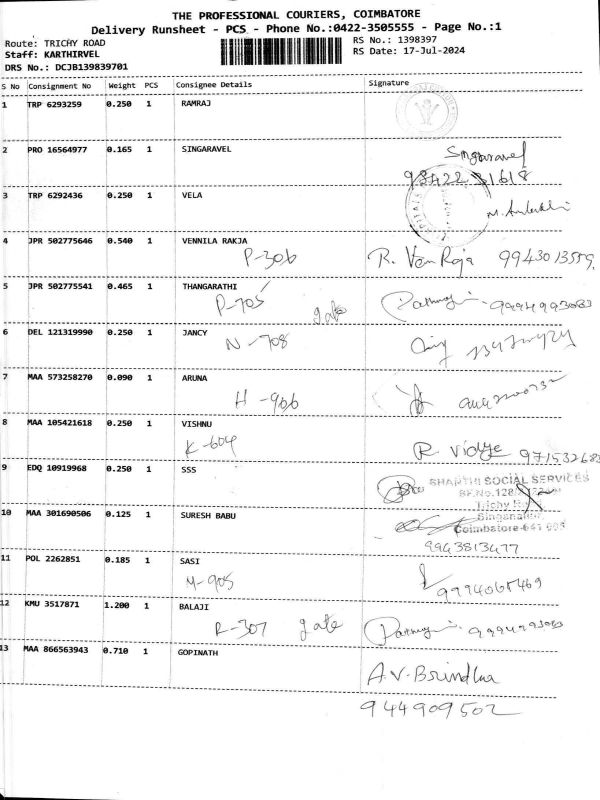 THE PROFESSIONAL COURIERS, COIMBATORE
Delivery Runsheet - PCS - Phone No.:0422-3505555 - Page No.:1
Route: TRICHY ROAD RS No.: 1398397
Staff: KARTHIRVEL RS Date: 17-Jul-2024
DRS No.: DCJB139839701
S No Consignment No Weight PCS Consignee Details Signature
1 TRP 6293259 0.250 1 RAMRAJ
2 PRO 16564977 0.165 1 SINGARAVEL Singaravel
98422 31618
3 TRP 6292436 0.250 1 VELA
4 JPR 502775646 0.540 1 VENNILA RAKJA
P-306 R. Ven Raja 9943013559.
5 JPR 502775541 0.465 1 THANGARATHI
P-705 gate 9994993083
6 DEL 121319990 0.250 1 JANCY
N-708
7 MAA 573258270 0.090 1 ARUNA
H-906
8 MAA 105421618 0.250 1 VISHNU
K-604 R Vidya 971532682
9 EDQ 10919968 0.250 1 SSS
SHANTHI SOCIAL SERVICES
10 MAA 301690506 0.125 1 SURESH BABU
Singanallur
Coimbatore-641 005
9943813477
11 POL 2262851 0.185 1 SASI
M-905 9994065469
12 KMU 3517871 1.200 1 BALAJI
R-307 gate 9994993083
13 MAA 866563943 0.710 1 GOPINATH
A.V.Brindha
944909502